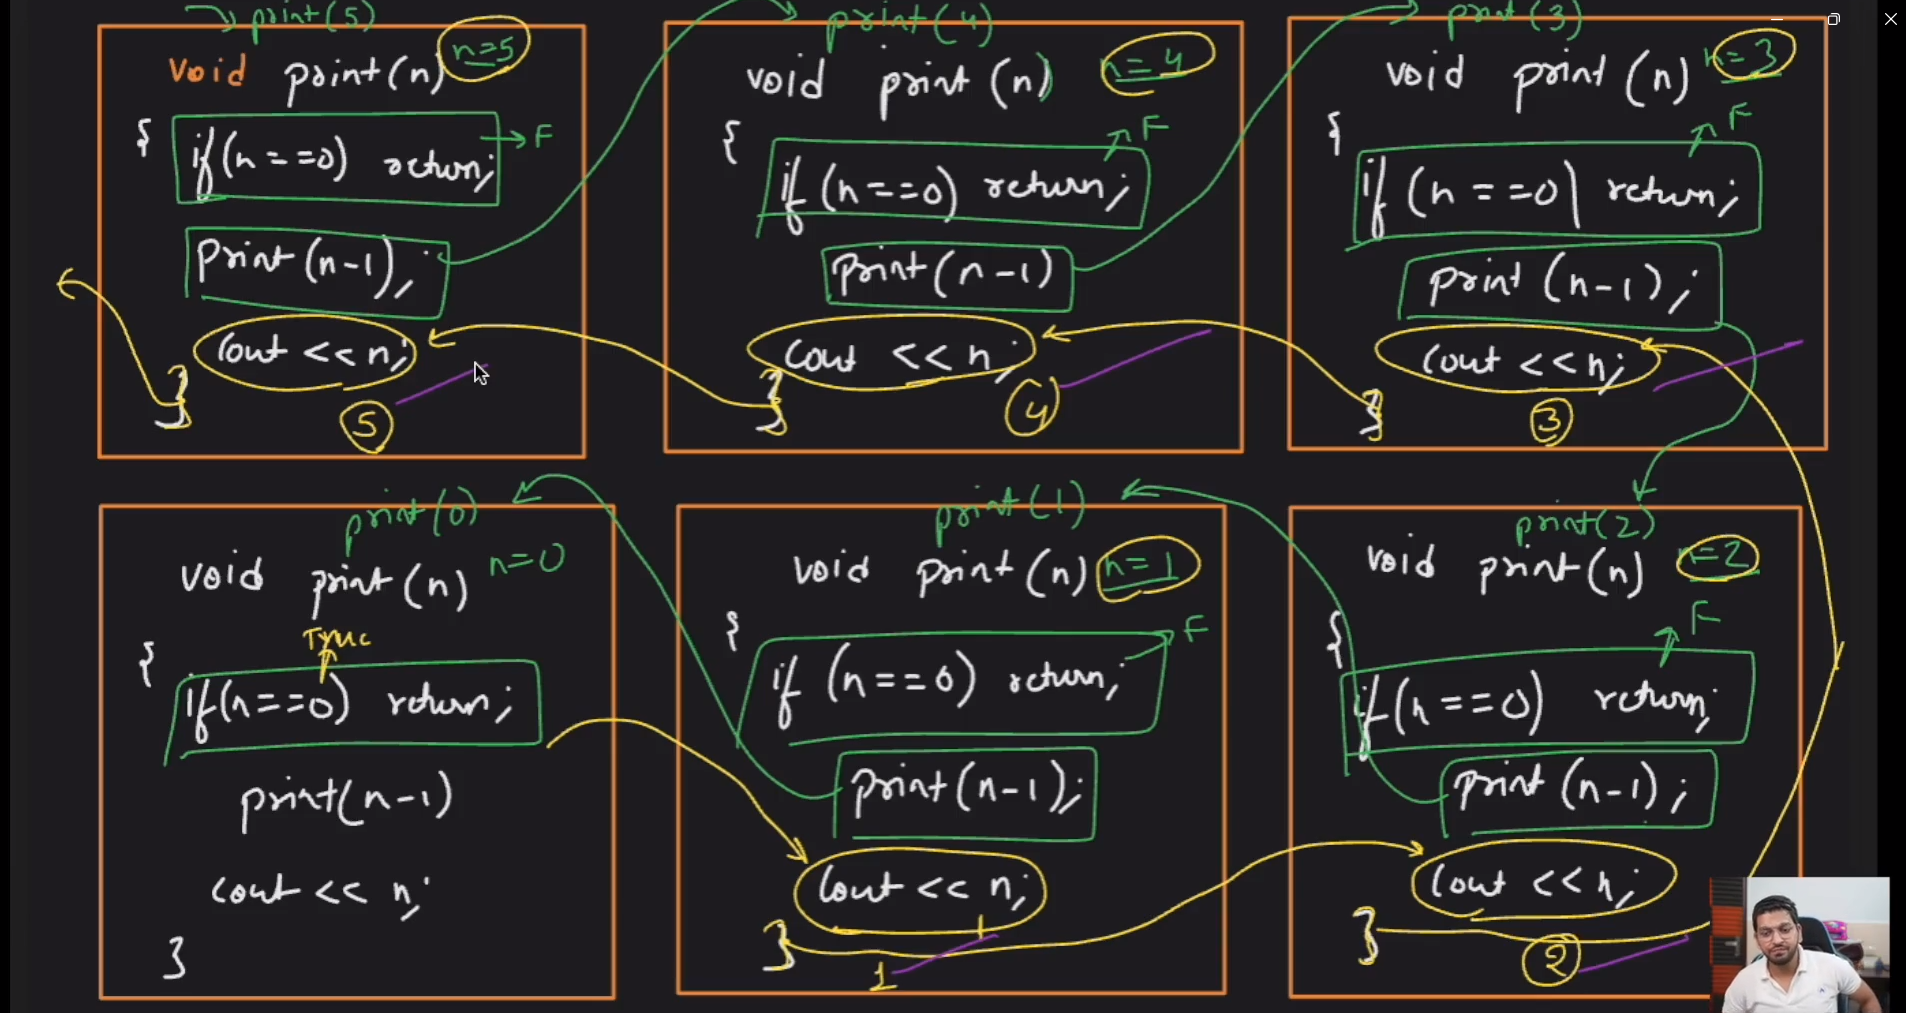 print(5)
n=5
void print(n)
{ if(n==0) return; → F
print(n-1);
cout << n;
}
5
print(4)
n=4
void print(n)
{
F
if(n==0) return;
print(n-1)
cout << n;
}
4
print(3)
n=3
void print(n)
{
F
if(n==0) return;
print(n-1);
cout << n;
}
3
print(0)
void print(n) n=0
True
{
if(n==0) return;
print(n-1)
cout << n;
}
print(1)
void print(n) n=1
{
F
if(n==0) return;
print(n-1);
cout << n;
}
1
1
print(2)
void print(n) n=2
{
F
if(n==0) return;
print(n-1);
cout << n;
}
2